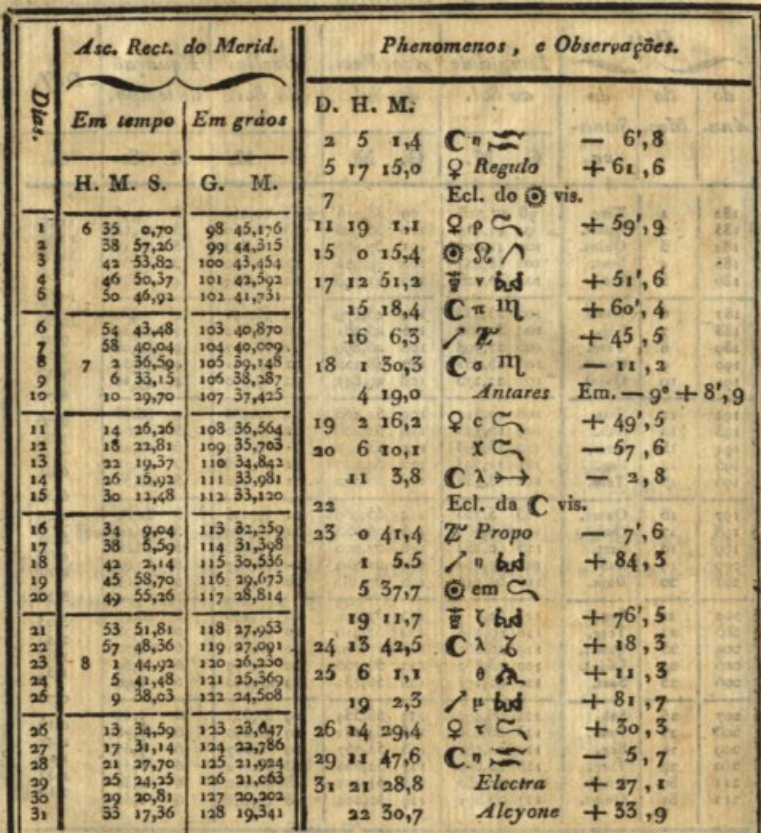 Asc. Rect. do Merid.
Dias.
Em tempo Em gráos
H. M. S. G. M.
1 6 35 0,70 98 45,176
2 38 57,26 99 44,315
3 42 53,82 100 43,454
4 46 50,37 101 42,592
5 50 46,92 102 41,731
6 54 43,48 103 40,870
7 58 40,04 104 40,009
8 7 2 36,59 105 39,148
9 6 33,15 106 38,287
10 10 29,70 107 37,425
11 14 26,26 108 36,564
12 18 22,81 109 35,703
13 22 19,37 110 34,842
14 26 15,92 111 33,981
15 30 12,48 112 33,120
16 34 9,04 113 32,259
17 38 5,59 114 31,398
18 42 2,14 115 30,536
19 45 58,70 116 29,675
20 49 55,26 117 28,814
21 53 51,81 118 27,953
22 57 48,36 119 27,091
23 8 1 44,92 120 26,230
24 5 41,48 121 25,369
25 9 38,03 122 24,508
26 13 34,59 123 23,647
27 17 31,14 124 22,786
28 21 27,70 125 21,924
29 25 24,25 126 21,063
30 29 20,81 127 20,202
31 33 17,36 128 19,341
Phenomenos, e Observações.
D. H. M.
2 5 1,4 ☾ η ♒ — 6',8
5 17 15,0 ♀ Regulo + 61,6
7 Ecl. do ☉ vis.
11 19 1,1 ♀ ρ ♌ + 59',9
15 0 15,4 ☉ ☊
17 12 51,2 ν + 51',6
15 18,4 ☾ π ♏ + 60',4
16 6,3 + 45,5
18 1 30,3 ☾ σ ♏ — 11,2
4 19,0 Antares Em. — 9° + 8',9
19 2 16,2 ♀ c ♌ + 49',5
20 6 10,1 χ ♌ — 57,6
11 3,8 ☾ λ ♐ — 2,8
22 Ecl. da ☾ vis.
23 0 41,4 Propo — 7',6
1 5.5 η + 84,3
5 37,7 ☉ em ♌
19 11,7 ζ + 76',5
24 13 42,5 ☾ λ ♑ + 18,3
25 6 1,1 θ + 11,3
19 2,3 μ + 81,7
26 14 29,4 ♀ τ ♌ + 30,3
29 11 47,6 ☾ η ♒ — 5,7
31 21 28,8 Electra + 27,1
22 30,7 Alcyone + 33,9